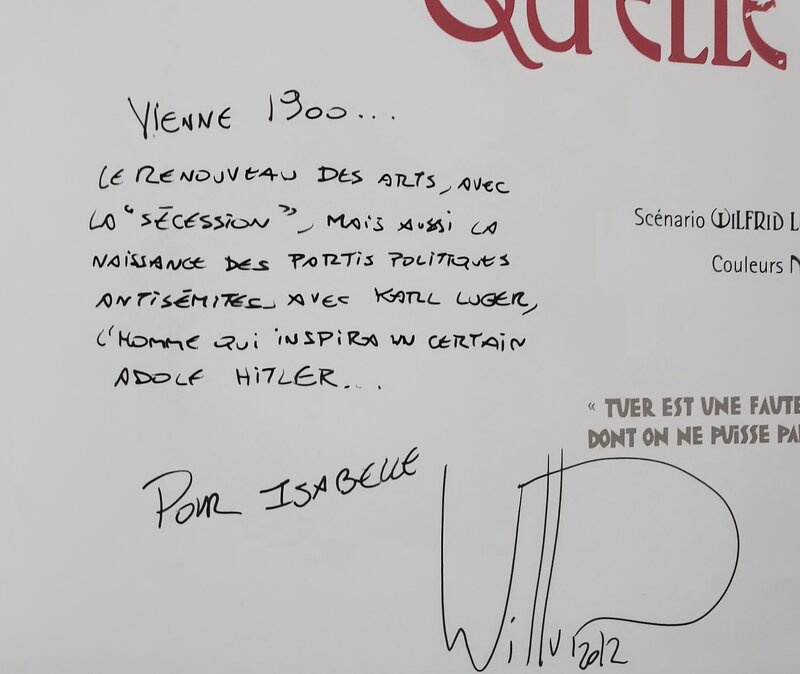 QU'ELLE
VIENNE 1900...
LE RENOUVEAU DES ARTS, AVEC
LA "SÉCESSION", MAIS AUSSI LA
NAISSANCE DES PARTIS POLITIQUES
ANTISÉMITES, AVEC KARL LUGER,
L'HOMME QUI INSPIRA UN CERTAIN
ADOLF HITLER...
Scénario WILFRID L
Couleurs N
« TUER EST UNE FAUTE
DONT ON NE PUISSE PA
POUR ISABELLE
2012